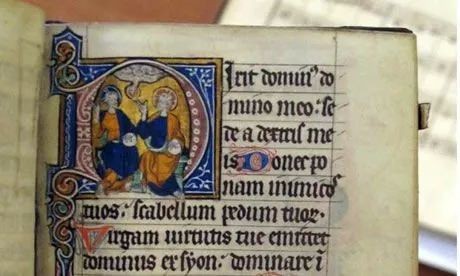 Dixit domin⁹ do
mino meo: se
de a dextris me
is Donec po
nam inimicos
tuos: scabellum pedum tuoꝝ.
Virgam uirtutis tue emittet
dominus ex syon: dominare ī